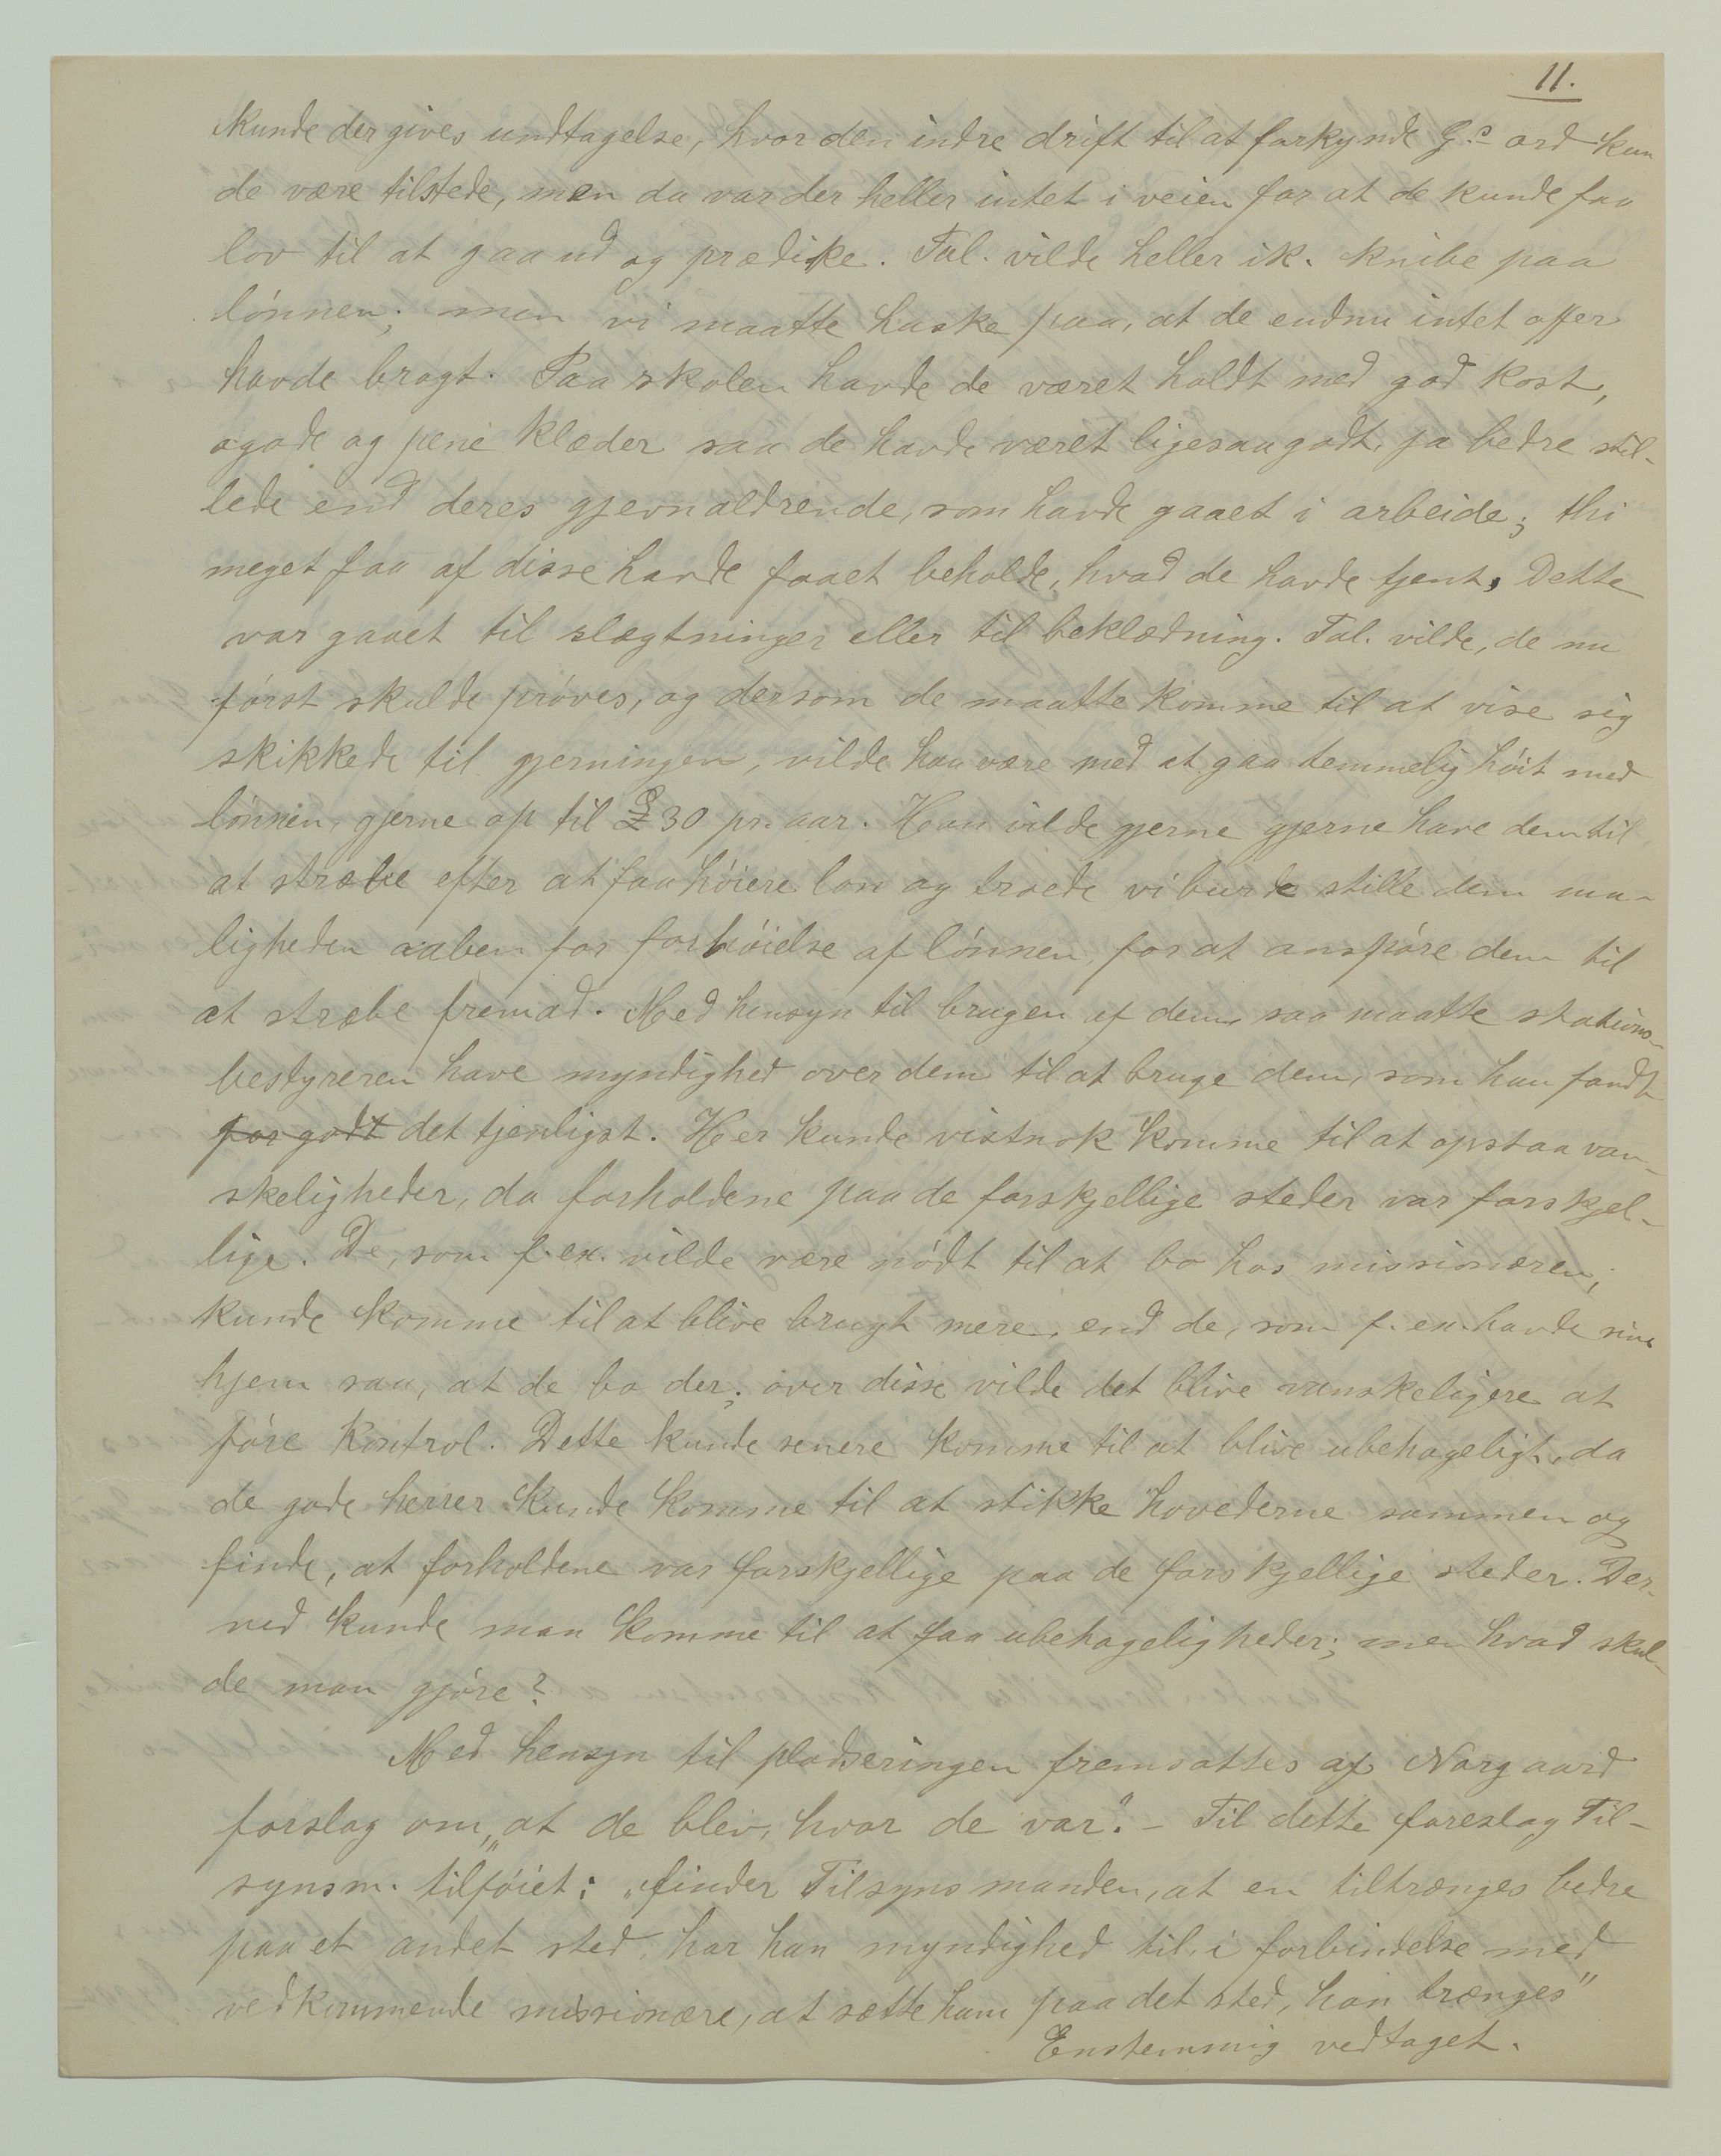 11.
kunde der gives undtagelse, hvor den indre drift til at forkynde G.s ord kun
de være tilstede, men da var der heller intet i veien for at de kunde faa
lov til at gaa ud og prædike. Tal. vilde heller ik. knibe paa
lønnen; men vi maatte huske paa, at de endnu intet offer
havde bragt. Paa skolen havde de været holdt med god kost,
ogode og pene klæder saa de havde været ligesaagodt, ja bedre stil-
lede end deres gjevnaldrende, som havde gaaet i arbeide; thi
meget faa af disse havde faaet beholde, hvad de havde tjent, Dette
var gaaet til slægtninger eller til beklædning. Tal. vilde, de nu
først skulde prøves, og dersom de maatte komme til at vise sig
skikkede til gjerningen, vilde han være med at gaa temmelig høit med
lønnen, gjerne op til £ 30 pr. aar. Han vilde gjerne gjerne have dem til
at stræbe efter at faa høiere løn og troede vi burde stille dem mu-
ligheden aaben for forhøielse af lønnen, for at anspore dem til
at stræbe fremad. Med hensyn til brugen af dem, saa maatte stations-
bestyreren have myndighed over dem til at bruge dem, som han fandt
for godt det tjenligst. Her kunde vistnok komme til at opstaa van-
skeligheder, da forholdene paa de forskjellige steder var forskjel-
lige. De, som f. ex. vilde være nødt til at bo hos missionæren;
kunde komme til at blive brugt mere, end de, som f. ex. havde sine
hjem saa, at de bo der; over disse vilde det blive vanskeligere at
føre kontrol. Dette kunde senere komme til at blive ubehageligt, da
de gode herrer kunde komme til at stikke hovederne sammen og
finde, at forholdene var forskjellige paa de forskjellige steder. Der-
ved kunde man komme til at faa ubehageligheder; men hvad skul-
de man gjøre?
Med hensyn til pladseringen fremsattes af Norgaard
forslag om „at de blev, hvor de var". - Til dette foreslag Til-
synsm. tilføiet: „finder Tilsynsmanden, at en tiltrænges bedre
paa et andet sted, har han myndighed til, i forbindelse med
vedkommende missionære, at sætte ham paa det sted, han trænges"
Enstemmig vedtaget.